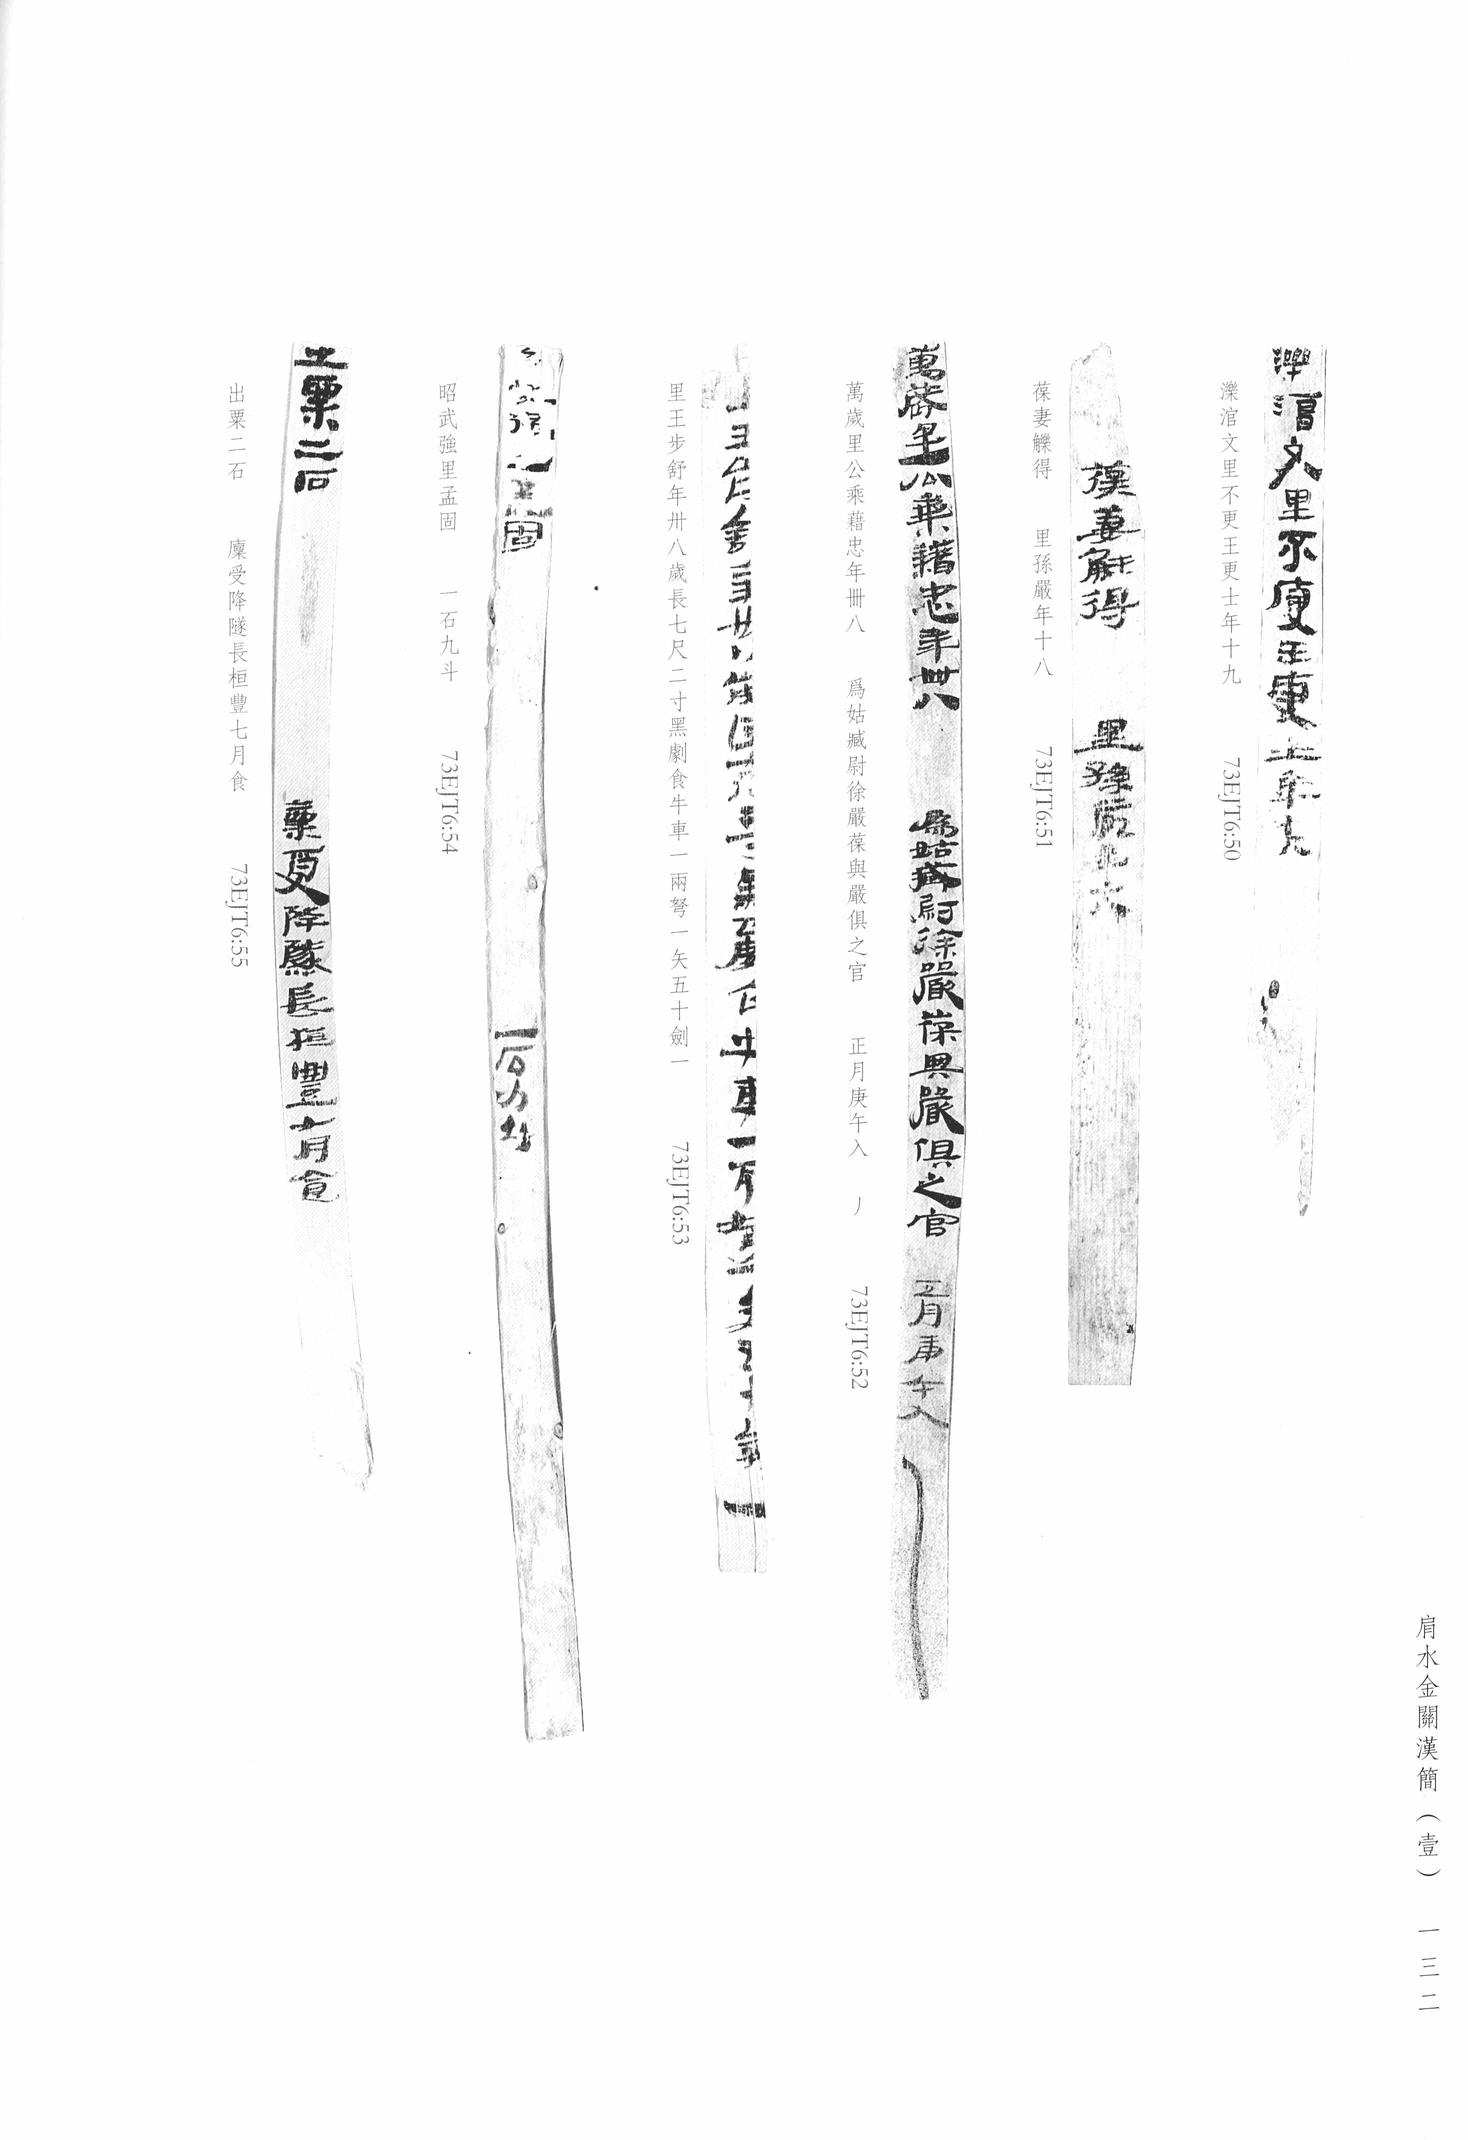 肩水金關漢簡（壹） 一三二
濼涫文里不更王更士年十九 73EJT6:50
葆妻觻得 里孫嚴年十八 73EJT6:51
萬歲里公乘藉忠年卌八 爲姑臧尉徐嚴葆與嚴俱之官 正月庚午入 丿 73EJT6:52
里王步舒年卅八歲長七尺二寸黑劇食牛車一兩弩一矢五十劍一 73EJT6:53
昭武強里孟固 一石九斗 73EJT6:54
出粟二石 廩受降隧長桓豐七月食 73EJT6:55